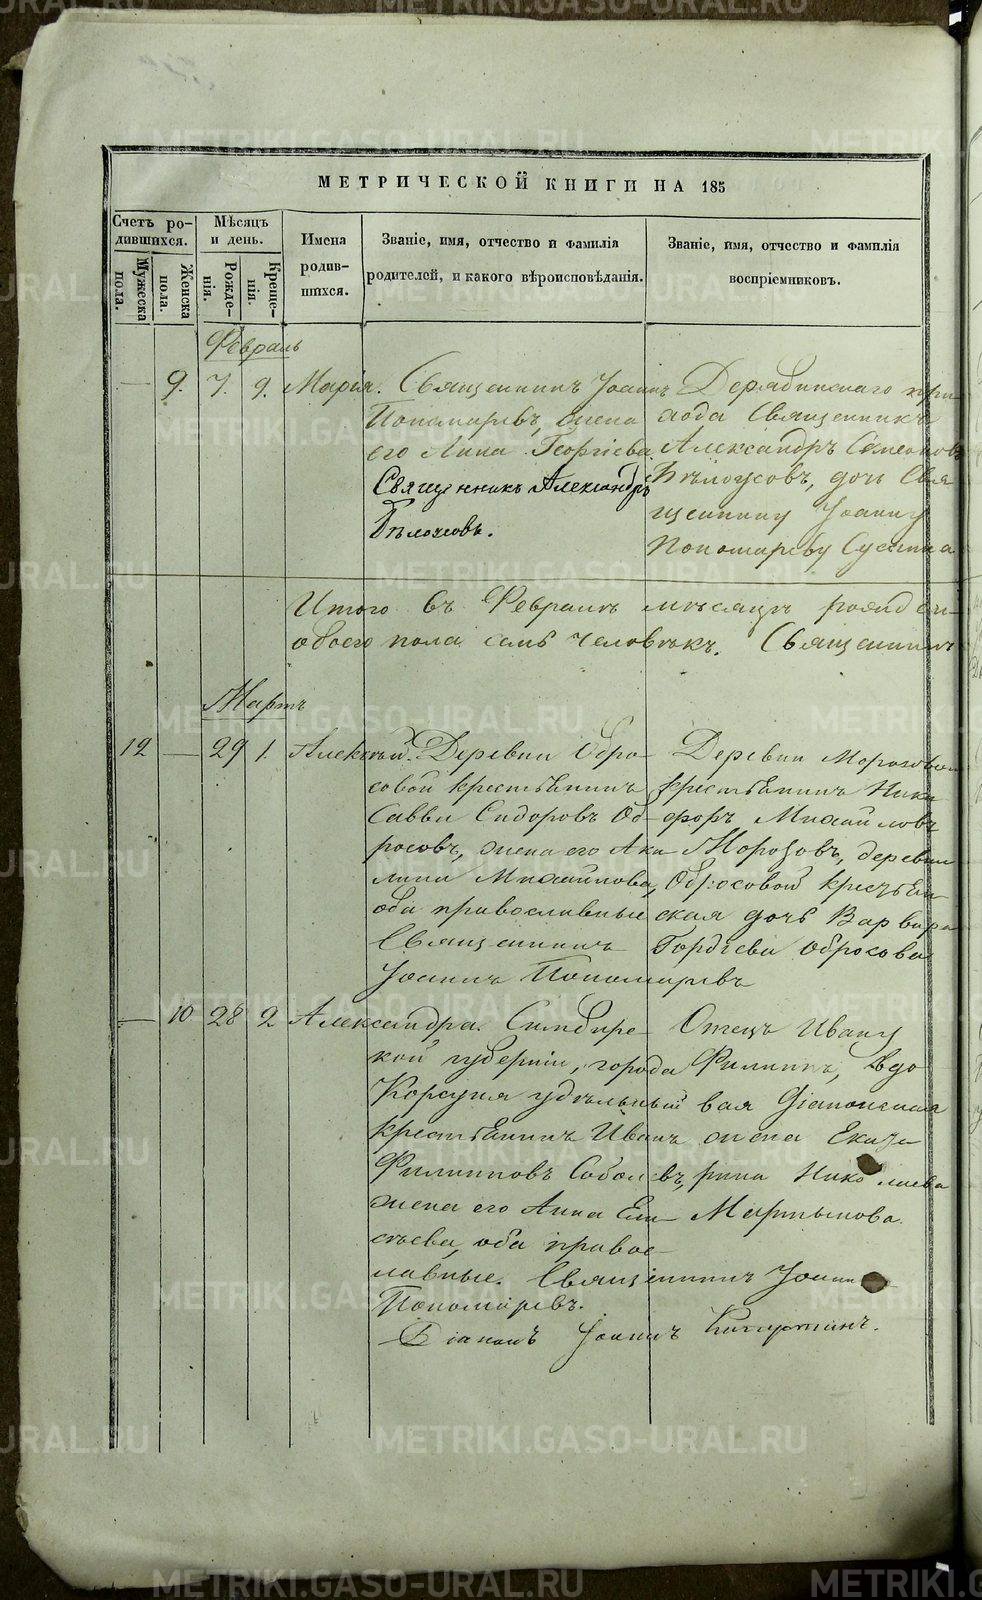 МЕТРИЧЕСКОЙ КНИГИ НА 185
Счетъ ро-
дившихся.
Мужеска
пола.
Женска
пола.
Мѣсяцъ
и день.
Рожде-
нія.
Креще-
нія.
Имена
родив-
шихся.
Званіе, имя, отчество и фамилія
родителей, и какого вѣроисповѣданія.
Званіе, имя, отчество и фамилія
воспріемниковъ.
Февраль
9. 7. 9. Марія.
Священникъ Іоаннъ
Пономаревъ, жена
его Анна Георгіева.
Священникъ Александръ
Бѣлоусовъ.
Дерябинскаго при
хода Священникъ
Александръ Симеоновъ
Бѣлоусовъ, дочь Свя
щеннику Іоанну
Пономареву Сусанна
Итого въ Февралѣ мѣсяцѣ рожден
обоего пола семь человѣкъ. Священникъ
Мартъ
12 — 29 1. Алексѣй.
Деревни Обро-
совой крестьянинъ
Савва Сидоровъ Об-
росовъ, жена его Аки-
лина Михайлова,
оба православные
Священникъ
Іоаннъ Пономаревъ
Деревни Морозовой
крестьянинъ Ники
форъ Михайловъ
Морозовъ, деревни
Обросовой крестьян
ская дочь Варвара
Гордѣева Обросова
— 10 28 2 Александра.
Симбирс-
кой губерніи, города
Корсуня удѣльный
крестьянинъ Иванъ
Филипповъ Соболевъ,
жена его Анна Ели-
сѣева, оба правос-
лавные. Священникъ Іоаннъ
Пономаревъ.
Діаконъ Іоаннъ
Отецъ Ивану
Филиппъ, вдо
вая Діаконская
жена Екате
рина Николаева
Мартынова.
METRIKI.GASO-URAL.RU